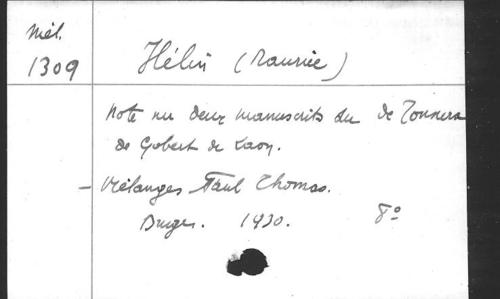 Mél.
1309
Hélin (Maurice)
Note sur deux manuscrits du de Tonsura
de Gobert de Laon.
- Mélanges Paul Thomas.
Bruges. 1930. 8°